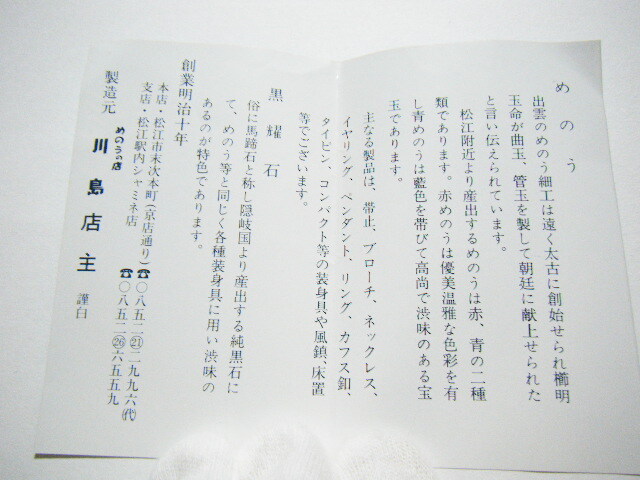 めのう
出雲のめのう細工は遠く太古に創始せられ櫛明
玉命が曲玉、管玉を製して朝廷に献上せられた
と言い伝えられています。
松江附近より産出するめのうは赤、青の二種
類であります。赤めのうは優美温雅な色彩を有
し青めのうは藍色を帯びて高尚で渋味のある宝
玉であります。
主なる製品は、帯止、ブローチ、ネックレス、
イヤリング、ペンダント、リング、カフス釦、
タイピン、コンパクト等の装身具や風鎮、床置
等でございます。
黒耀石
俗に馬蹄石と称し隠岐国より産出する純黒石に
て、めのう等と同じく各種装身具に用い渋味の
あるのが特色であります。
創業明治十年
本店・松江市末次本町(京店通り)☎〇八五二㉑二九九六(代)
支店・松江駅内シャミネ店 ☎〇八五二㉖六五五九
製造元 めのうの店 川島店主 謹白